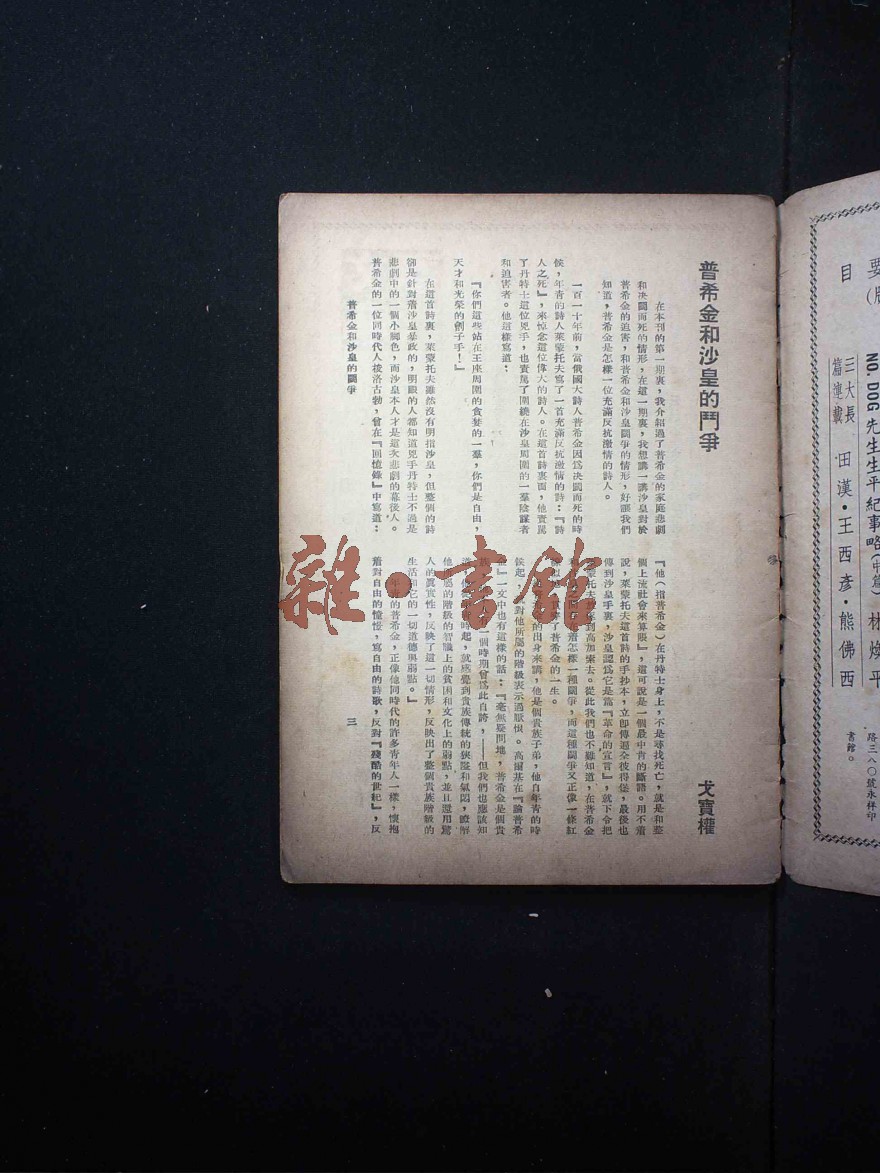 普希金和沙皇的鬥爭
戈寶權
在本刊的第一期裏，我介紹過了普希金的家庭悲劇
和決鬥而死的情形，在這一期裏，我想講一講沙皇對於
普希金的迫害，和普希金和沙皇鬥爭的情形，好讓我們
知道，普希金是怎樣一位充滿反抗激情的詩人。
一百一十年前，當俄國大詩人普希金因爲決鬥而死的時
候，年青的詩人萊蒙托夫寫了一首充滿反抗激情的詩：『詩
人之死』，來悼念這位偉大的詩人。在這首詩裏面，他責罵
了丹特士這位兇手，也責罵了圍繞在沙皇周圍的一羣陰謀者
和迫害者。他這樣寫道：
『你們這些站在王座周圍的貪婪的一羣，你們是自由，
天才和光榮的劊子手！』
在這首詩裏，萊蒙托夫雖然沒有明指沙皇，但整個的詩
卻是針對着沙皇暴政的，明眼的人都知道兇手丹特士不過是
悲劇中的一個小腳色，而沙皇本人才是這次悲劇的幕後人。
普希金的一位同時代人梭洛古勃，曾在『回憶錄』中寫道：
『他（指普希金）在丹特士身上，不是尋找死亡，就是和整
個上流社會來算賬』，這可說是一個最中肯的斷語。用不着
說，萊蒙托夫這首詩的手抄本，立即傳遍全彼得堡，最後也
傳到沙皇手裏，沙皇認爲它是篇『革命的宣言』，就下令把
蒙托夫 到高加索去。從此我們也不難知道，在普希金
和 着怎樣一種鬥爭，而這種鬥爭又正像一條紅
了普希金的一生。
的出身來講，他是個貴族子弟，他自年青的時
候起， 對他所屬的階級表示過厭恨。高爾基在『論普希
金』一文中也有這樣的話：『毫無疑問地，普希金是個貴
族， 有一個時期曾爲此自誇，——但我們也應該知
道， 時起，就感覺到貴族傳統的狹隘和氣悶，瞭解
他 屬的階級的智識上的貧困和文化上的弱點，並且 用驚
人的眞實性，反映了這一切情形，反映出了整個貴族階級的
生活和它的一切道德與弱點。』
年青的普希金，正像他同時代的許多青年人一樣，懷抱
着對自由的憧憬，寫自由的詩歌，反對『殘酷的世紀』，反
普希金和沙皇的鬥爭
三
雜·書館
要
目
NO. DOG 先生生平紀事略（中篇）林煥平
三大長
篇連載
田漢·王西彥·熊佛西
路三八〇號永祥印
書館。